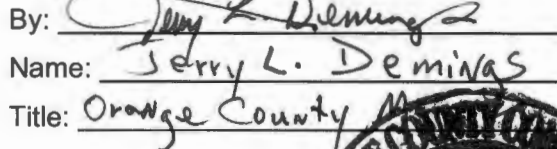 By: Jerry L Demings
Name: Jerry L. Demings
Title: Orange County